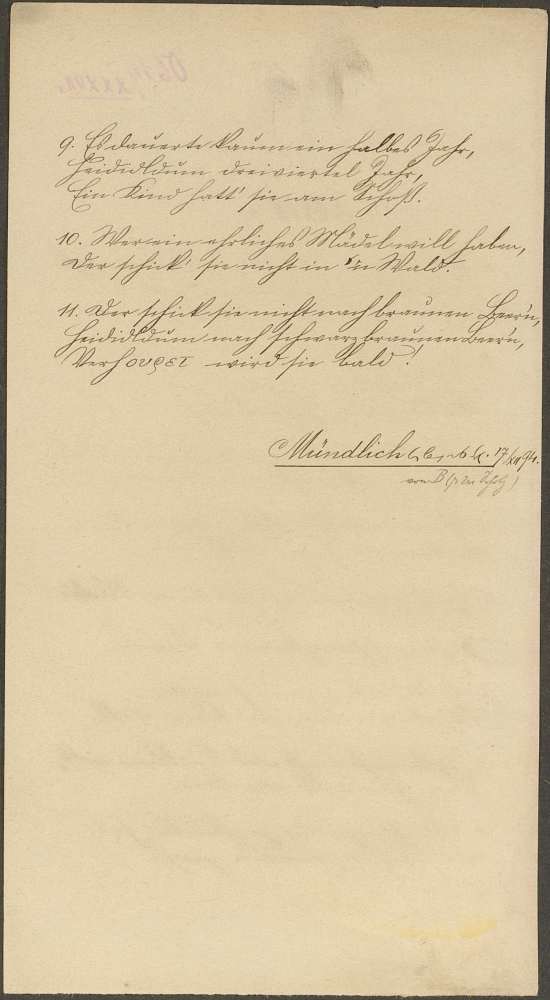 9. Es dauerte kaum ein halbes Jahr,
Heididldum dreiviertel Jahr,
Ein Kind hatt' sie am Schoß.
10. Wer ein ehrliches Mädel will haben,
Der schick' sie nicht in 'n Wald.
11. Der schick sie nicht nach braunen Beer'n,
Heididldum nach schwarzbraunen Beer'n,
Verh wird sie bald!
Mündlich 17/XII 94.
von B